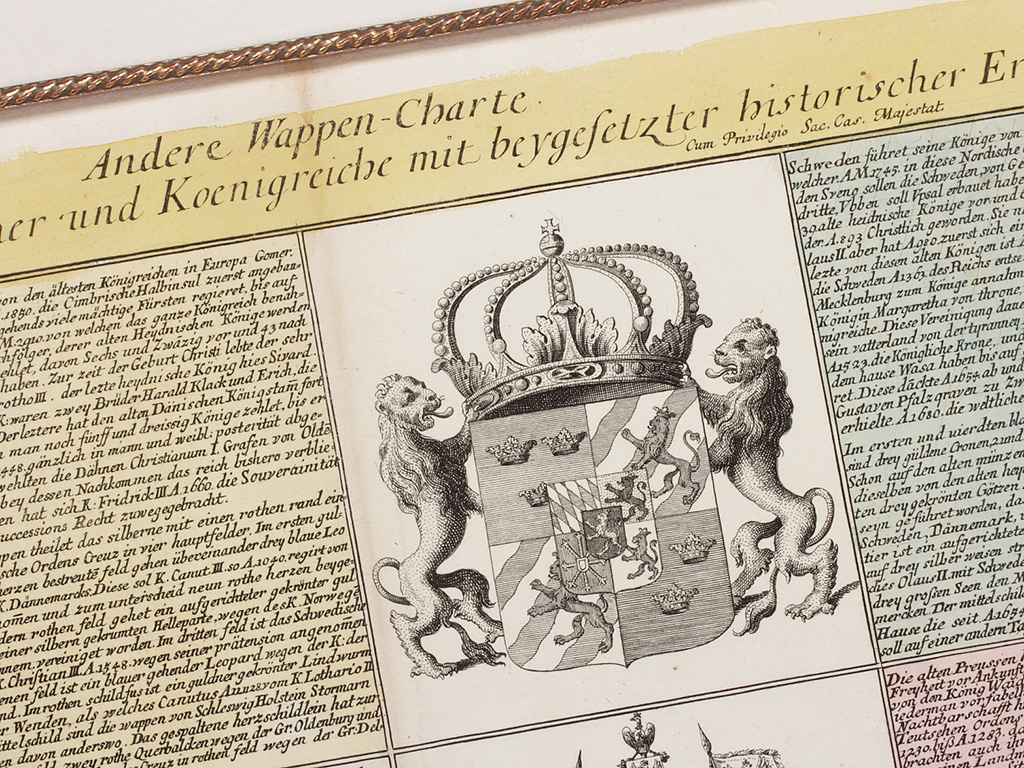 Andere Wappen-Charte.
und Koenigreiche mit beygesetzter historischer
Cum Privilegio Sac. Cas. Majestat.
von den ältesten Königreichen in Europa Gomer.
1850. die Cimbrische Halbinsul zuerst angebau-
gehends viele mächtige Fürsten regieret, bis auf
von welchen das ganze Königreich benäh-
derer alten Heydnischen Könige werden
zehlet, davon Sechs und Zwäzig vor und 43 nach
haben. Zur zeit der Geburt Christi lebte der sehr
rotho III. der lezte heydnische König hies Sivard.
K: waren zwey Brüder Harald Klack und Erich, die
Der leztere hat den alten Dänischen Königstam̅ fort
man noch fünff und dreissig Könige zehlet, bis er
1448. gänzlich in mann und weibl: posterität abge-
wehlten die Dähnen Christianum I. Grafen von Olde
bey dessen Nachkommen das reich bishero verblie-
en hat sich K: Fridrick III. A. 1660. die Souverainität
Successions Recht zuwegegebracht.
pen theilet das silberne mit einen rothen rand ein
sche Ordens Creuz in vier hauptfelder. Im ersten gul
herzen bestreute feld gehen übereinander drey blaue Leo
K. Dännemarcks. Diese sol K. Canut. III. so A. 1040. regirt von
nom̅en und zum unterscheid neun rothe herzen beyge-
dern rothen feld gehet ein aufgerichteter gekrönter gul
einer silbern gekrumten Helleparte, wegen des K. Norweg
nem, vereiniget worden. Im dritten feld ist das Schwedische
K. Christian III. A. 1548. wegen seiner prätension angenom̅en
enen feld ist ein blauer gehender Leopard wegen der K: der
nd. Im rothen schildfus ist ein guldner gekrönter Lindwurm
r Wenden, als welches Canutus vom K. Lothario II
ittelschild sind die wappen von Schleswig Holstein Stormarn
en davon anderswo. Das gespaltene herzschildlein hat zur
feld zwey rothe Querbalcken wegen der Gr. Oldenburg und
Creuz in rothen feld wegen der Gr: Del-
Schweden führet seine Könige von
welcher A.M. 1745. in diese Nordische
den Sveno sollen die Schweden, von Ge
dritte, Vbben soll Vpsal erbauet habe
39 alte heidnische Könige vor und
der A. 893 Christlich geworden. Sie n
laus II. aber hat A. 980. zuerst sich ei
lezte von diesen alten Königen ist
die Schweden A. 1363. des Reichs entse
Mecklenburg zum Könige annahm
Königin Margaretha von throne,
nigreiche. Diese Vereinigung daue
sein vatterland von der tyranney
A. 1523. die Königliche Krone, un
dem hause Wasa haben bis auf
ret. Diese däckte A. 1654. ab und
Gustaven Pfalzgraven zu Zw
erhielte A. 1680. die weltliche
Im ersten und vierdten bla
sind drey güldne Cronen, 2 und
Schon auf den alten münz en
dieselben von den alten hey
ten drey gekrönten Götzen
seyn geführet worden, da
Schweden, Dännemark,
tier ist ein aufgerichtete
auf drey silber weisen str
dies Olaus II. mit Schwede
drey großen Seen den M
mercken. Der mittelschil
Hause die seit A. 1654
soll auf einer andern Ta
Die alten Preussen
Freyheit vor Ankunft
von den König
iederman vor
Nachtbarschafft
Teutschen Ordens
1230. biß A. 1283. da
brachten auch ih
einen Landen